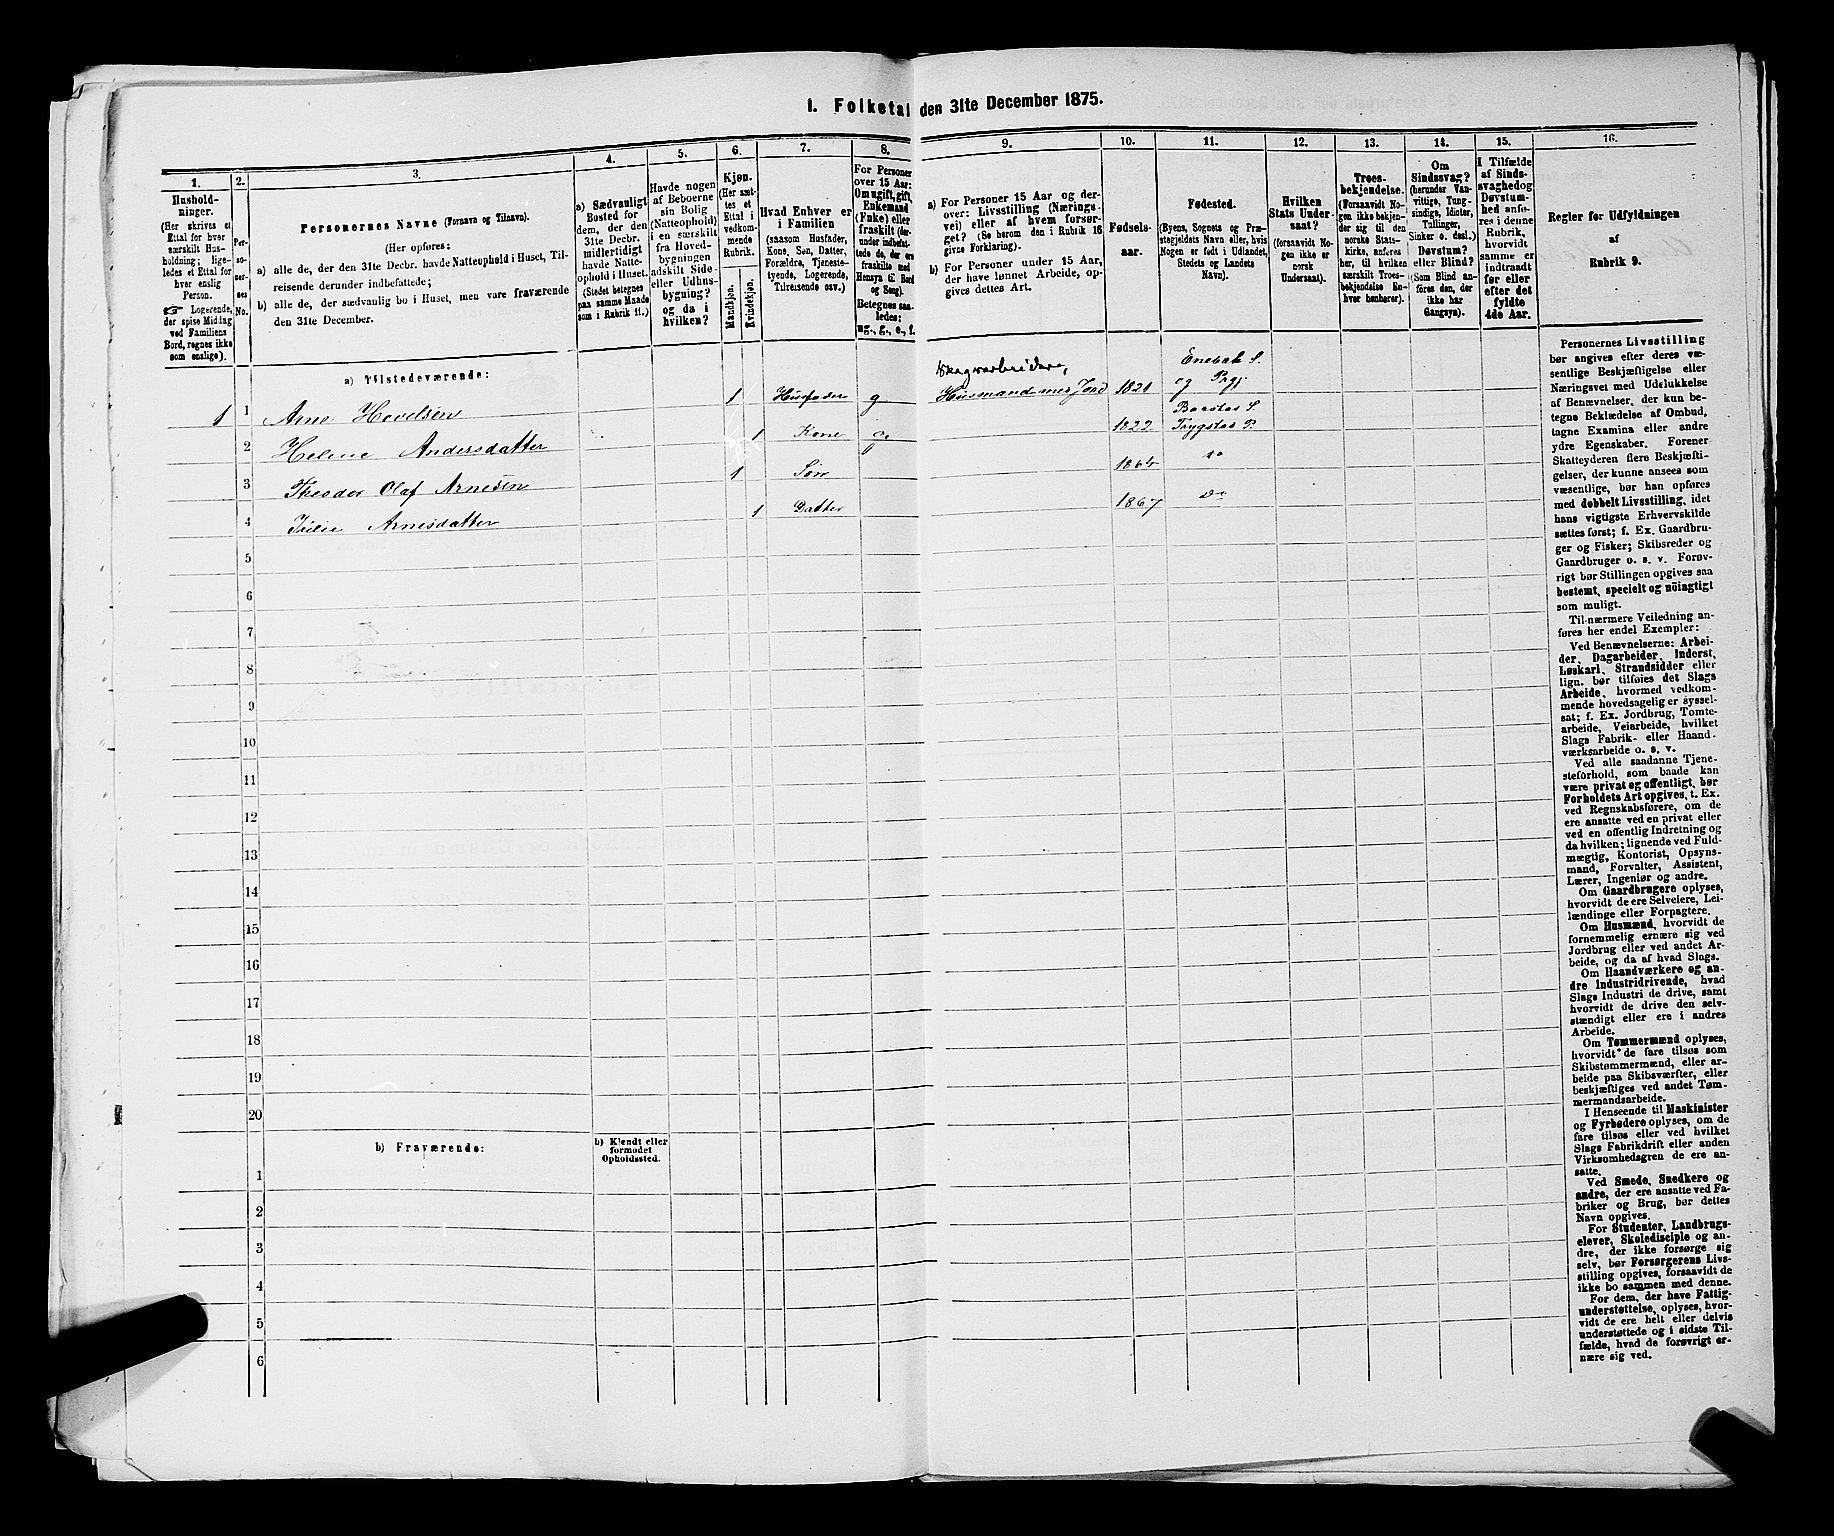 1. Folketal den 31te December 1875.
1.
2.
3.
4.
5.
6.
7.
8.
9.
10.
11.
12.
13.
14.
15.
16.
Hushold-
ninger.
(Her skrives et
Ettal for hver
særskilt Hus-
holdning; lige-
ledes et Ettal for
hver enslig
Person.
☞ Logerende,
der spise Middag
ved Familiens
Bord, regnes ikke
som enslige).
Per-
so-
ner-
nes
No.
Personernes Navne (Fornavn og Tilnavn).
(Her opføres:
a) alle de, der den 31te Decbr. havde Natteophold i Huset, Til-
reisende derunder indbefattede;
b) alle de, der sædvanlig bo i Huset, men vare fraværende
den 31te December.
a) Sædvanligt
Bosted for
dem, der den
31te Decbr.
midlertidigt
havde Natte-
ophold i Huset.
(Stedet betegnes
paa samme Maade
som i Rubrik 11.)
Havde nogen
af Beboerne
sin Bolig
(Natteophold)
i en særskilt
fra Hoved-
bygningen
adskilt Side-
eller Udhus-
bygning?
og da i
hvilken?
Kjøn.
(Her sæt-
tes et
Ettal i
vedkom-
mende
Rubrik.
Mandkjøn.
Kvindekjøn.
Hvad Enhver er
i Familien
(saasom Husfader,
Kone, Søn, Datter,
Forældre, Tjeneste-
tyende, Logerende,
Tilreisende osv.)
For Personer
over 15 Aar:
Om ugift, gift,
Enkemand
(Enke) eller
fraskilt (der-
under indbefat-
tede de, der ere
fraskilte med
Hensyn til Bord
og Seng).
Betegnes saa-
ledes:
ug., g., e., f.
a) For Personer 15 Aar og der-
over: Livsstilling (Nærings-
vei) eller af hvem forsør-
get? (Se herom den i Rubrik 16
givne Forklaring).
b) For Personer under 15 Aar,
der have lønnet Arbeide, op-
gives dettes Art.
Fødsels-
aar.
Fødested.
(Byens, Sognets og Præ-
stegjeldets Navn eller, hvis
Nogen er født i Udlandet,
Stedets og Landets
Navn).
Hvilken
Stats Under-
saat?
(forsaavidt No-
gen ikke er
norsk
Undersaat).
Troes-
bekjendelse.
(Forsaavidt No-
gen ikke bekjen-
der sig til den
norske Stats-
kirke, anføres
her, til hvilken
særskilt Troes-
bekjendelse En-
hver henhører).
Om
Sindssvag?
(herunder Van-
vittige, Tung-
sindige, Idioter,
Tullinger,
Sinker o. desl.)
Døvstum?
eller Blind?
(Som Blind an-
føres den, der
ikke har
Gangsyn).
I Tilfælde
af Sinds-
svaghed og
Døvstum-
hed anfø-
res i denne
Rubrik,
hvorvidt
samme er
indtraadt
før eller
efter det
fyldte
4de Aar.
Regler før Udfyldningen
af
Rubrik 9.
a) Tilstedeværende:
1 1 Arne Hovelsen 1 Husfader g Skogsarbeider, Husmand med Jord 1821 Enebak S. og Prgj
2 Helene Andersdatter 1 Kone g 1822 Baastad S. Trygstad P.
3 Theodor Olaf Arnesen 1 Søn 1864 do
4 Julie Arnesdatter 1 Datter 1867 do
5
6
7
8
9
10
11
12
13
14
15
16
17
18
19
20
b) Fraværende:
b) Kjendt eller
formodet
Opholdssted.
1
2
3
4
5
6
Personernes Livsstilling
bør angives efter deres væ-
sentlige Beskjæftigelse eller
Næringsvei med Udelukkelse
af Benævnelser, der kun be-
tegne Beklædelse af Ombud,
tagne Examina eller andre
ydre Egenskaber. Forener
Skatteyderen flere Beskjæfti-
gelser, der kunne ansees som
væsentlige, bør han opføres
med dobbelt Livsstilling, idet
hans vigtigste Erhvervskilde
sættes først; f. Ex. Gaardbru-
ger og Fisker; Skibsreder og
Gaardbruger o. s. v. Forøv-
rigt bør Stillingen opgives saa
bestemt, specielt og nöiagtigt
som muligt.
Til nærmere Veiledning an-
føres her endel Exempler:
Ved Benævnelserne: Arbei-
der, Dagarbeider, Inderst,
Løskarl, Strandsidder eller
lign. bør tilføies det Slags
Arbeide, hvormed vedkom-
mende hovedsagelig er syssel-
sat; f. Ex. Jordbrug, Tomte-
arbeide, Veiarbeide, hvilket
Slags Fabrik- eller Haand-
værksarbeide o. s. v.
Ved alle saadanne Tjene-
steforhold, som baade kan
være privat og offentligt, bør
Forholdets Art opgives, t. Ex.
ved Regnskabsførere, om de
ere ansatte ved en privat eller
ved en offentlig Indretning og
da hvilken; lignende ved Fuld-
mægtig, Kontorist, Opsyns-
mand, Forvalter, Assistent,
Lærer, Ingeniør og andre.
Om Gaardbrugere oplyses,
hvorvidt de ere Selveiere, Lei-
lændinge eller Forpagtere.
Om Husmænd, hvorvidt de
fornemmelig ernære sig ved
Jordbrug eller ved andet Ar-
beide, og da af hvad Slags.
Om Haandværkere og an-
dre Industridrivende, hvad
Slags Industri de drive, samt
hvorvidt de drive den selv-
stændigt eller ere i andres
Arbeide.
Om Tømmermænd oplyses,
hvorvidt de fare tilsøs som
Skibstømmermænd, eller ar-
beide paa Skibsværfter, eller
beskjæftiges ved andet Tøm-
mermandsarbeide.
I Henseende til Maskinister
og Fyrbødere oplyses, om de
fare tilsøs eller ved hvilket
Slags Fabrikdrift eller anden
Virksomhedsgren de ere an-
satte.
Ved Smede, Snedkere og
andre, der ere ansatte ved Fa-
briker og Brug, bør dettes
Navn opgives.
For Studenter, Landbrugs-
elever, Skoledisciple og an-
dre, der ikke forsørge sig
selv, bør Forsørgerens Livs-
stilling opgives, forsaavidt de
ikke bo sammen med denne.
For dem, der have Fattig-
understøttelse, oplyses, hvor-
vidt de ere helt eller delvis
understøttede og i sidste Til-
fælde, hvad de forøvrigt er-
nære sig ved.